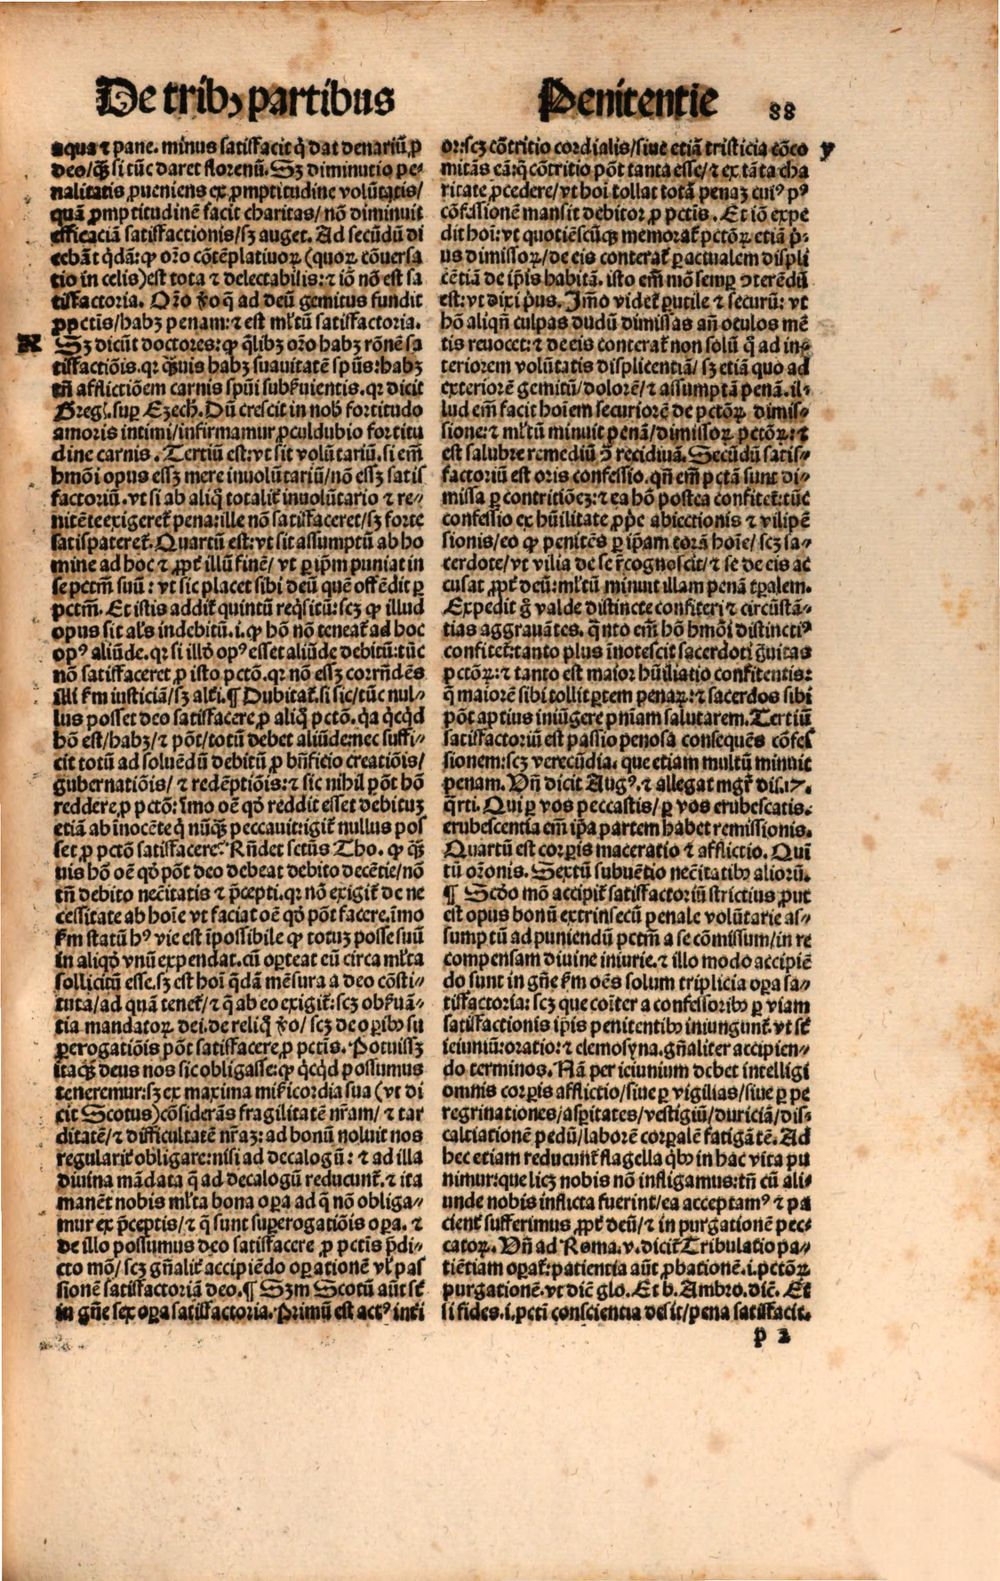 De tribꝫ partibus
Penitentie 88
aqua ⁊ pane. minus satisfacit q̇ dat denariū ꝓ
deo/ꝙ̃ si tūc daret florenū. Sꝫ diminutio pe-
nalitatis ꝓueniens ex ꝓmptitudine volūtatis/
quā ꝓmptitudinē facit charitas/nō diminuit
efficaciā satisfactionis/sꝫ auget. Ad secūdū di
cebāt qdā: ꝙ oro cōtēplatiuoꝝ (quoꝝ cōuersa
tio in celis) est tota ⁊ delectabilis: ⁊ iō nō est sa
tisfactoria. Orō ꝟo q̄ ad deū gemitus fundit
ꝓ pctis/habꝫ penam: ⁊ est mltū satisfactoria.
N
Sꝫ dicūt doctores: ꝙ qlibꝫ oro habꝫ rōnē sa
tisfactiōis. qꝛ ꝙ̃uis habꝫ suauitatē spūs: habꝫ
tñ afflictiōem carnis spūi subẜuientis. qꝛ dicit
Greg. suꝑ Ezech. Dū crescit in nob fortitudo
amoris intimi/infirmamur ꝓculdubio fortitu
dine carnis. Tertiū est: vt sit volūtariū. si em̄
hmōi opus essꝫ mere inuolūtariū/nō essꝫ satis
factoriū. vt si ab aliq̄ totalit̉ inuolūtario ⁊ re-
nitēte exigeret̉ pena: ille nō satisfaceret/sꝫ forte
satispateret̉. Quartū est: vt sit assumptū ab ho
mine ad hoc ⁊ ꝓpt̉ illū finē/ vt ꝑ ip̄m puniat in
se pctm̄ suū: vt sic placet sibi deū quē offēdit ꝑ
pctm̄. Et istis addit̉ quintū reqsitū: scꝫ ꝙ illud
opus sit als indebitū. i. ꝙ hō nō teneat̉ ad hoc
opꝰ aliūde. qꝛ si illō opꝰ esset aliūde debitū: tūc
nō satisfaceret ꝓ isto pctō. qꝛ nō essꝫ corrn̄dēs
illi ẜm iusticiā/sꝫ alt̉i. ¶ Dubitat̉. si sic/tūc nul-
lus posset deo satisfacere ꝓ aliq̄ pctō. qꝛ qcqd
hō est/habꝫ/⁊ pōt/totū debet aliūde: nec suffi-
cit totū ad soluendū debitū ꝓ bn̄ficio creatiōis/
gubernatiōis/⁊ redēptiōis: ⁊ sic nihil pōt hō
reddere ꝓ pctō: īmo oē qō reddit esset debituꝫ
etiā ab īnocēte q̇ nūꝙ̃ peccauit: igit̉ nullus pos
set ꝓ pctō satisfacere? Rn̄det sctūs Tho. ꝙ ꝙ̃
uis hō oē qō pōt deo debeat debito decētie/nō
tñ debito necītatis ⁊ p̄cepti. qꝛ nō exigit̉ de ne
cessitate ab hoīe vt faciat oē qō pōt facere. īmo
ẜm statū hꝰ vie est īpossibile ꝙ totuꝫ posse suū
in aliqō vnū expendat. cū oꝑteat eū circa mlta
sollicitū esse. sꝫ est hoī qdā mēsura a deo cōsti-
tuta/ad quā tenet̉/⁊ q̄ ab eo exigit̉: scꝫ obẜuā-
tia mandatoꝝ dei. de reliq̄ ꝟo/ scꝫ de oꝑibꝫ su
ꝑerogatiōis pōt satisfacere ꝓ pctis. Potuissꝫ
itaqꝫ deus nos sic obligasse: ꝙ qcqd possumus
teneremur: sꝫ ex maxima mi̅icordia sua (vt di
cit Scotus) cōsiderās fragilitatē nr̄am/⁊ tar
ditatē/⁊ difficultatē nr̄aꝫ: ad bonū noluit nos
regularit̉ obligare: nisi ad decalogū: ⁊ ad illa
diuina mādata q̄ ad decalogū reducunt̉. ⁊ ita
manēt nobis mlta bona oꝑa ad q̄ nō obliga-
mur ex p̄ceptis/⁊ q̄ sunt suꝑerogatiōis oꝑa. ⁊
de illo possumus deo satisfacere ꝓ pctis p̄di-
cto mō/ scꝫ gn̄alit̉ accipiēdo oꝑationē vl̓ pas
sionē satisfactoriā deo. ¶ Sꝫm Scotū aūt st̉
in gn̄e sex oꝑa satisfactoria. Primū est actꝰ inti
or: scꝫ cōtritio cordialis/siue etiā tristicia cōco
y
mitās eā: q̄ cōtritio pōt tanta esse/⁊ ex tāta cha
ritate ꝓcedere/vt hoī tollat totā penaꝫ cuiꝰ pꝰ
cōfessionē mansit debitor ꝓ pctis. Et iō expe
dit hoī: vt quotiēscūqꝫ memorat̉ pctōꝝ etiā pꝛi
us dimissoꝝ/de eis conterat̉ ꝑ actualem displi
cētiā de ip̄is habitā. isto em̄ mō semꝑ ꝯterēdū
est: vt dixi pus. Jm̄o videt̉ ꝑutile ⁊ securū: vt
hō aliqn̄ culpas dudū dimissas an̄ oculos mē
tis reuocet: ⁊ de eis conterat̉ non solū q̄ ad in-
teriorem volūtatis displicentiā/ sꝫ etiā quo ad
exteriorē gemitū/dolorē/⁊ assumptā penā. il-
lud em̄ facit hoīem securiorē de pctōꝝ dimis-
sione: ⁊ mltū minuit penā/dimissoꝝ pctōꝝ: ⁊
est salubre remediū ꝯ̄ recidiuā. Secūdū satis-
factoriū est oris confessio. qn̄ em̄ pctā sunt di-
missa ꝑ contritiōeꝫ: ⁊ ea hō postea confitet̉: tūc
confessio ex hūilitate ꝓp̄e abiectionis ⁊ vilipē
sionis/eo ꝙ penitēs ꝑ ip̄am torā hoīe/ scꝫ sa-
cerdote/vt vilia de se r̄cognoscit/⁊ se de eis ac
cusat ꝓpt̉ deū: mltū minuit illam penā tꝑalem.
Expedit g̊ valde distincte confiteri ⁊ circūstā-
tias aggrauātes. q̄nto em̄ hō hmōi distinctiꝰ
confitet̉: tanto plus īnotescit sacerdoti g̊uitas
pctōꝝ: ⁊ tanto est maior hūiliatio confitentis:
q̄ maiorē sibi tollit ꝑtem penaꝝ: ⁊ sacerdos sibi
pōt aptius iniūgere pn̄iam salutarem. Tertiū
satisfactoriū est passio penosa consequēs cōfes
sionem: scꝫ verecūdia. que etiam multū minuit
penam. Vn̄ dicit Augꝰ. ⁊ allegat mgr̄ dis. 17.
q̄rti. Qui ꝑ vos peccastis/ ꝑ vos erubescatis.
erubescentia em̄ ip̄a partem habet remissionis.
Quartū est corꝑis maceratio ⁊ afflictio. Quī
tū orōnis. Sextū subuētio necītatibꝫ alioꝝ.
¶ Scōo mō accipit̉ satisfactoriū strictius/put
est opus bonū extrinsecū penale volūtarie as-
sumptū ad puniendū pctm̄ a se cōmissum/in re
compensam diuine iniurie. ⁊ illo modo accipiē
do sunt in gn̄e ẜm oēs solum triplicia oꝑa sa-
tisfactoria: scꝫ que coīter a confessoribꝫ ꝑ viam
satisfactionis ip̄is penitentibꝫ iniungunt̉. vt st̉
ieiuniū: oratio: ⁊ elemosyna. gn̄aliter accipien-
do terminos. Nā per ieiunium debet intelligi
omnis corꝑis afflictio/siue ꝑ vigilias/siue ꝑ pe
regrinationes/asꝑitates/vestigiū/duriciā/dis-
calciationē pedū/laborē corꝑalē fatigātē. Ad
hec etiam reducunt̉ flagella qbꝫ in hac vita pu
nimur: que licꝫ nobis nō infligamus: tñ cū ali-
unde nobis inflicta fuerint/ea acceptamꝰ ⁊ pa
cient̉ sufferimus ꝓpt̉ deū/⁊ in purgationē pec-
catoꝝ. Vn̄ ad Roma. v. dicit̉ Tribulatio pa-
tiētiam oꝑat̉: patientia aūt ꝓbationē. i. pctōꝝ
purgationē. vt diē glo. Et b. Ambro. diē. Et
si fides. i. pcti conscientia desit/pena satisfacit.
p 2